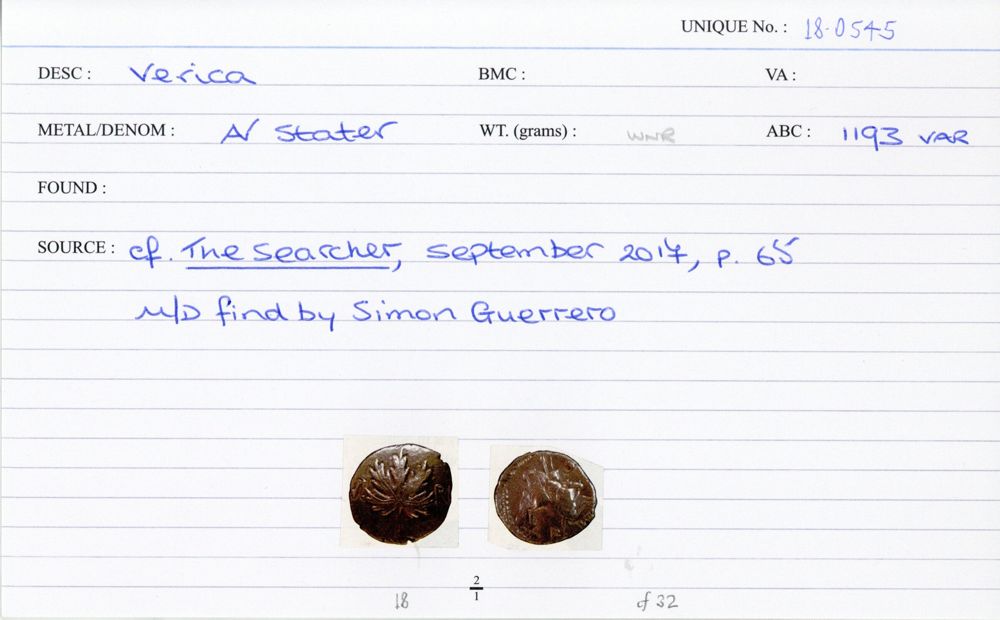 UNIQUE No. : 18-0545
DESC : Verica BMC : VA :
METAL/DENOM : AV Stater WT. (grams) : WNR ABC : 1193 VAR
FOUND :
SOURCE : cf. The Searcher, September 2017, p. 65
M/D find by Simon Guerrero
2
1
18 cf 32